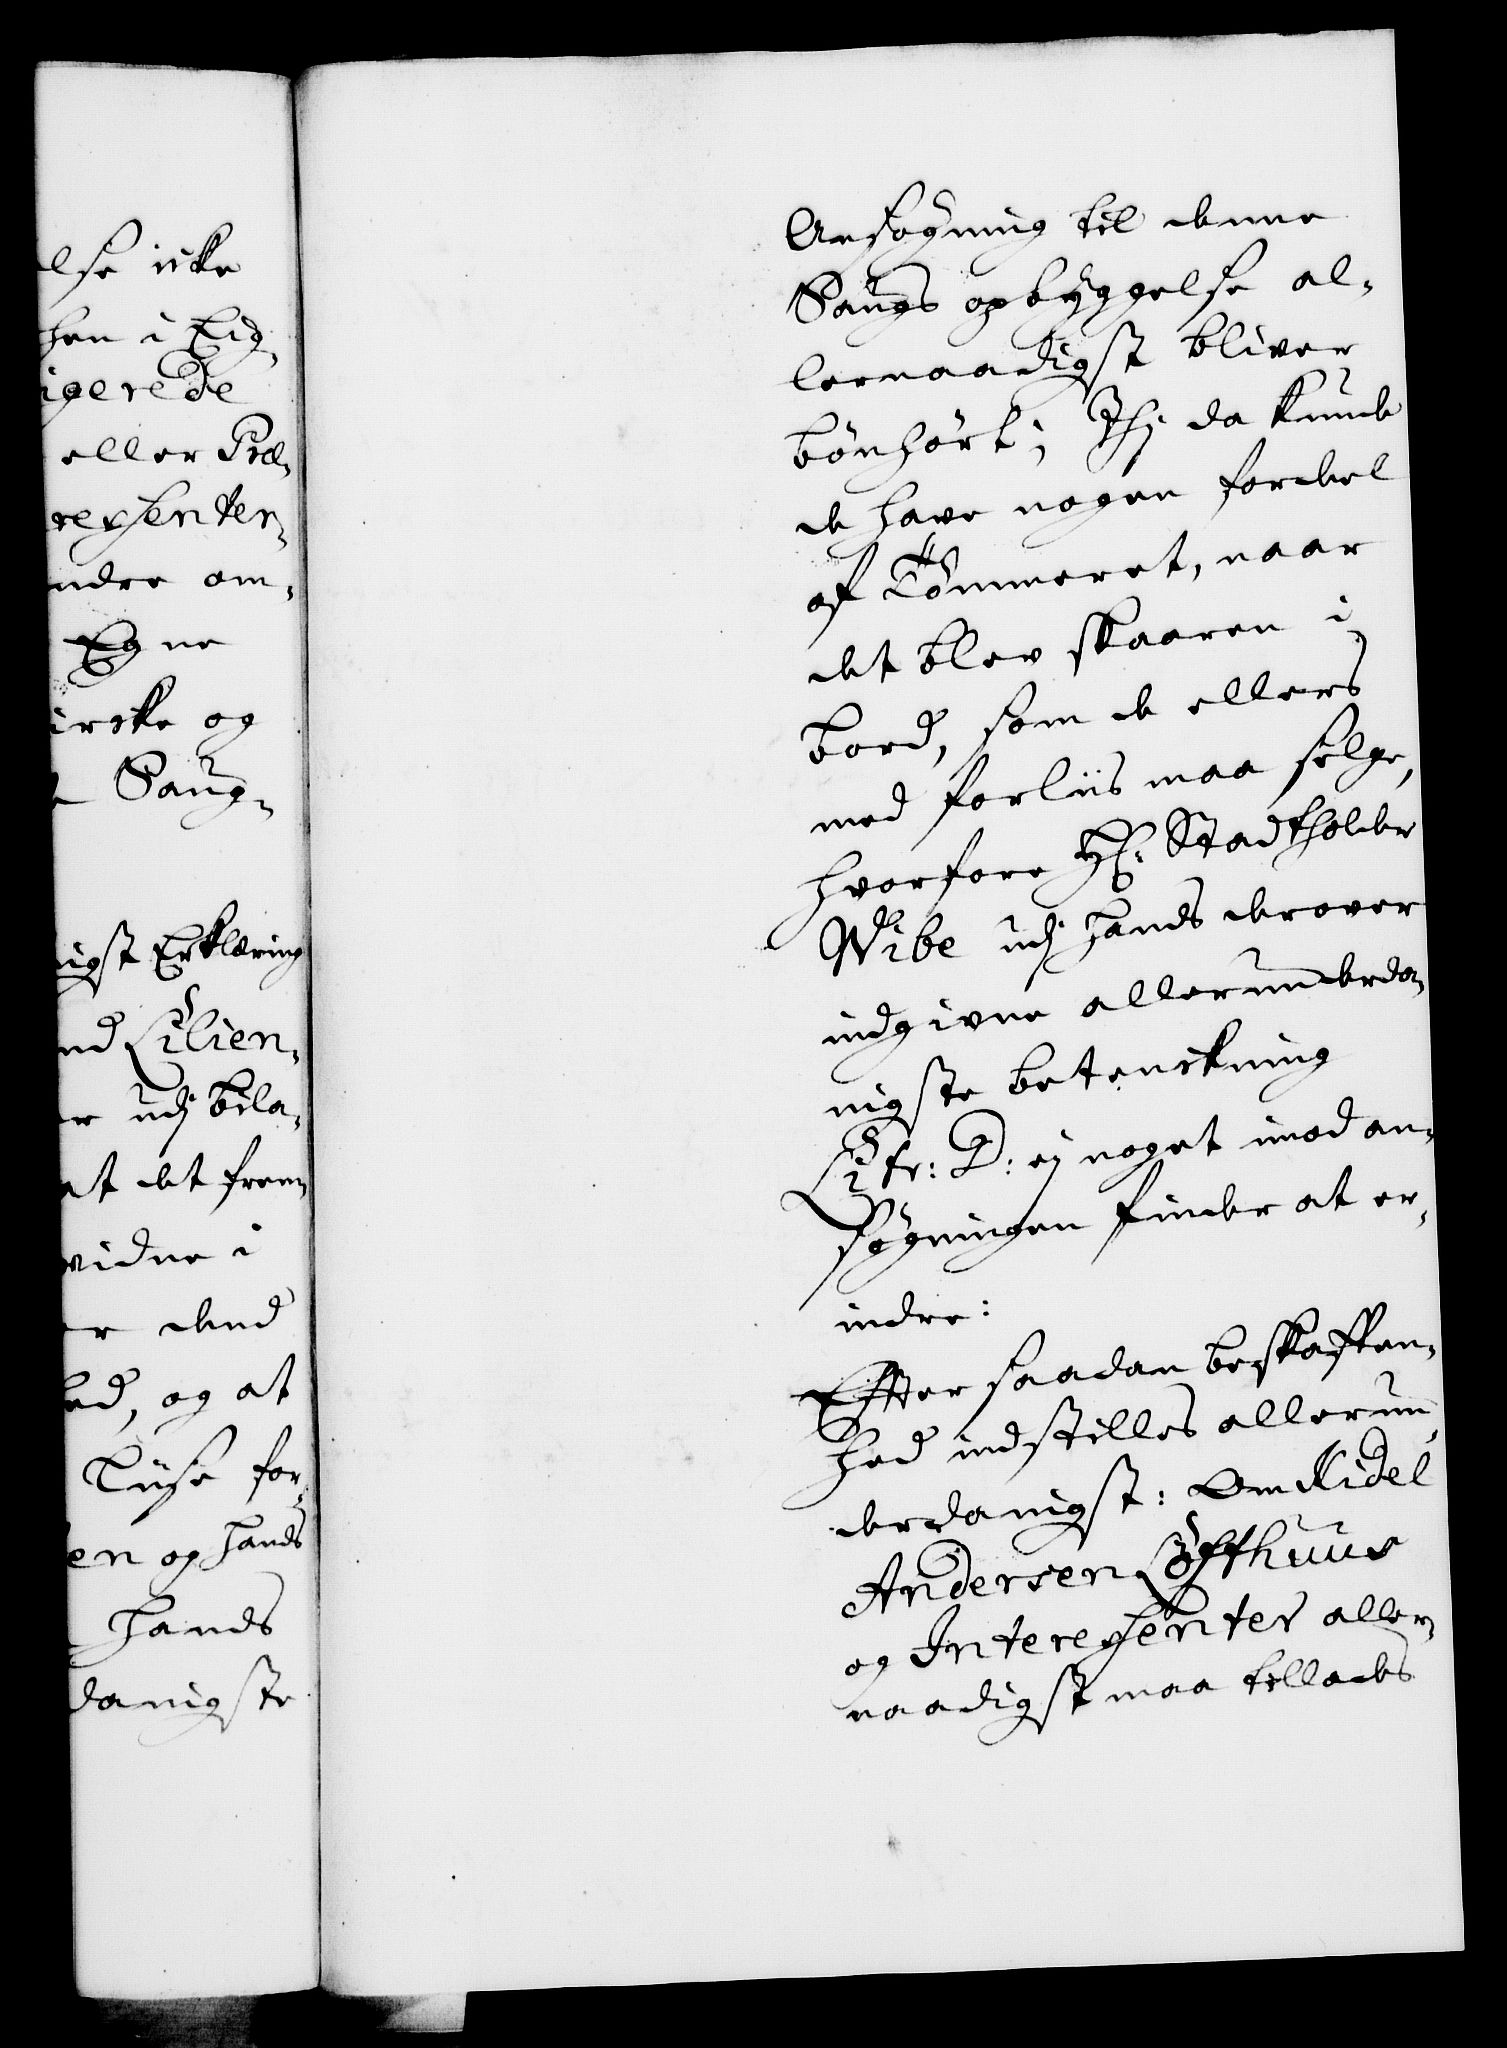 lse icke
hen i Eig
igerede
eller Præ,
ressenter,
ndre om,
Egne
ircke og
Saug,
igst Erklæring
nd Lilien,
r udj bila,
at det frem
vidne i
er dend
hed, og at
Tuse for,
en og hands
hands
danigste
Ansøgning til denne
Saugs opbyggelse al,
lernaadigst bliver
bönhört; Thj da kunde
de have nogen fordeel
af Tömmeret, naar
det blev skaaren i
bord, som de ellers
med forliis maa selge,
hvorfore Hr: Stadtholder
Wibe udj hands derover
indgivne allerunderda,
nigste betenckning
Litr: D: ej noget imod an,
søgningen finder at er,
indre:
Efter saadan beskaffen,
hed indstilles allerun,
derdanigst: Om Kidel
Andersen Löffthuus
og Interessenter aller,
naadigst maa tillades